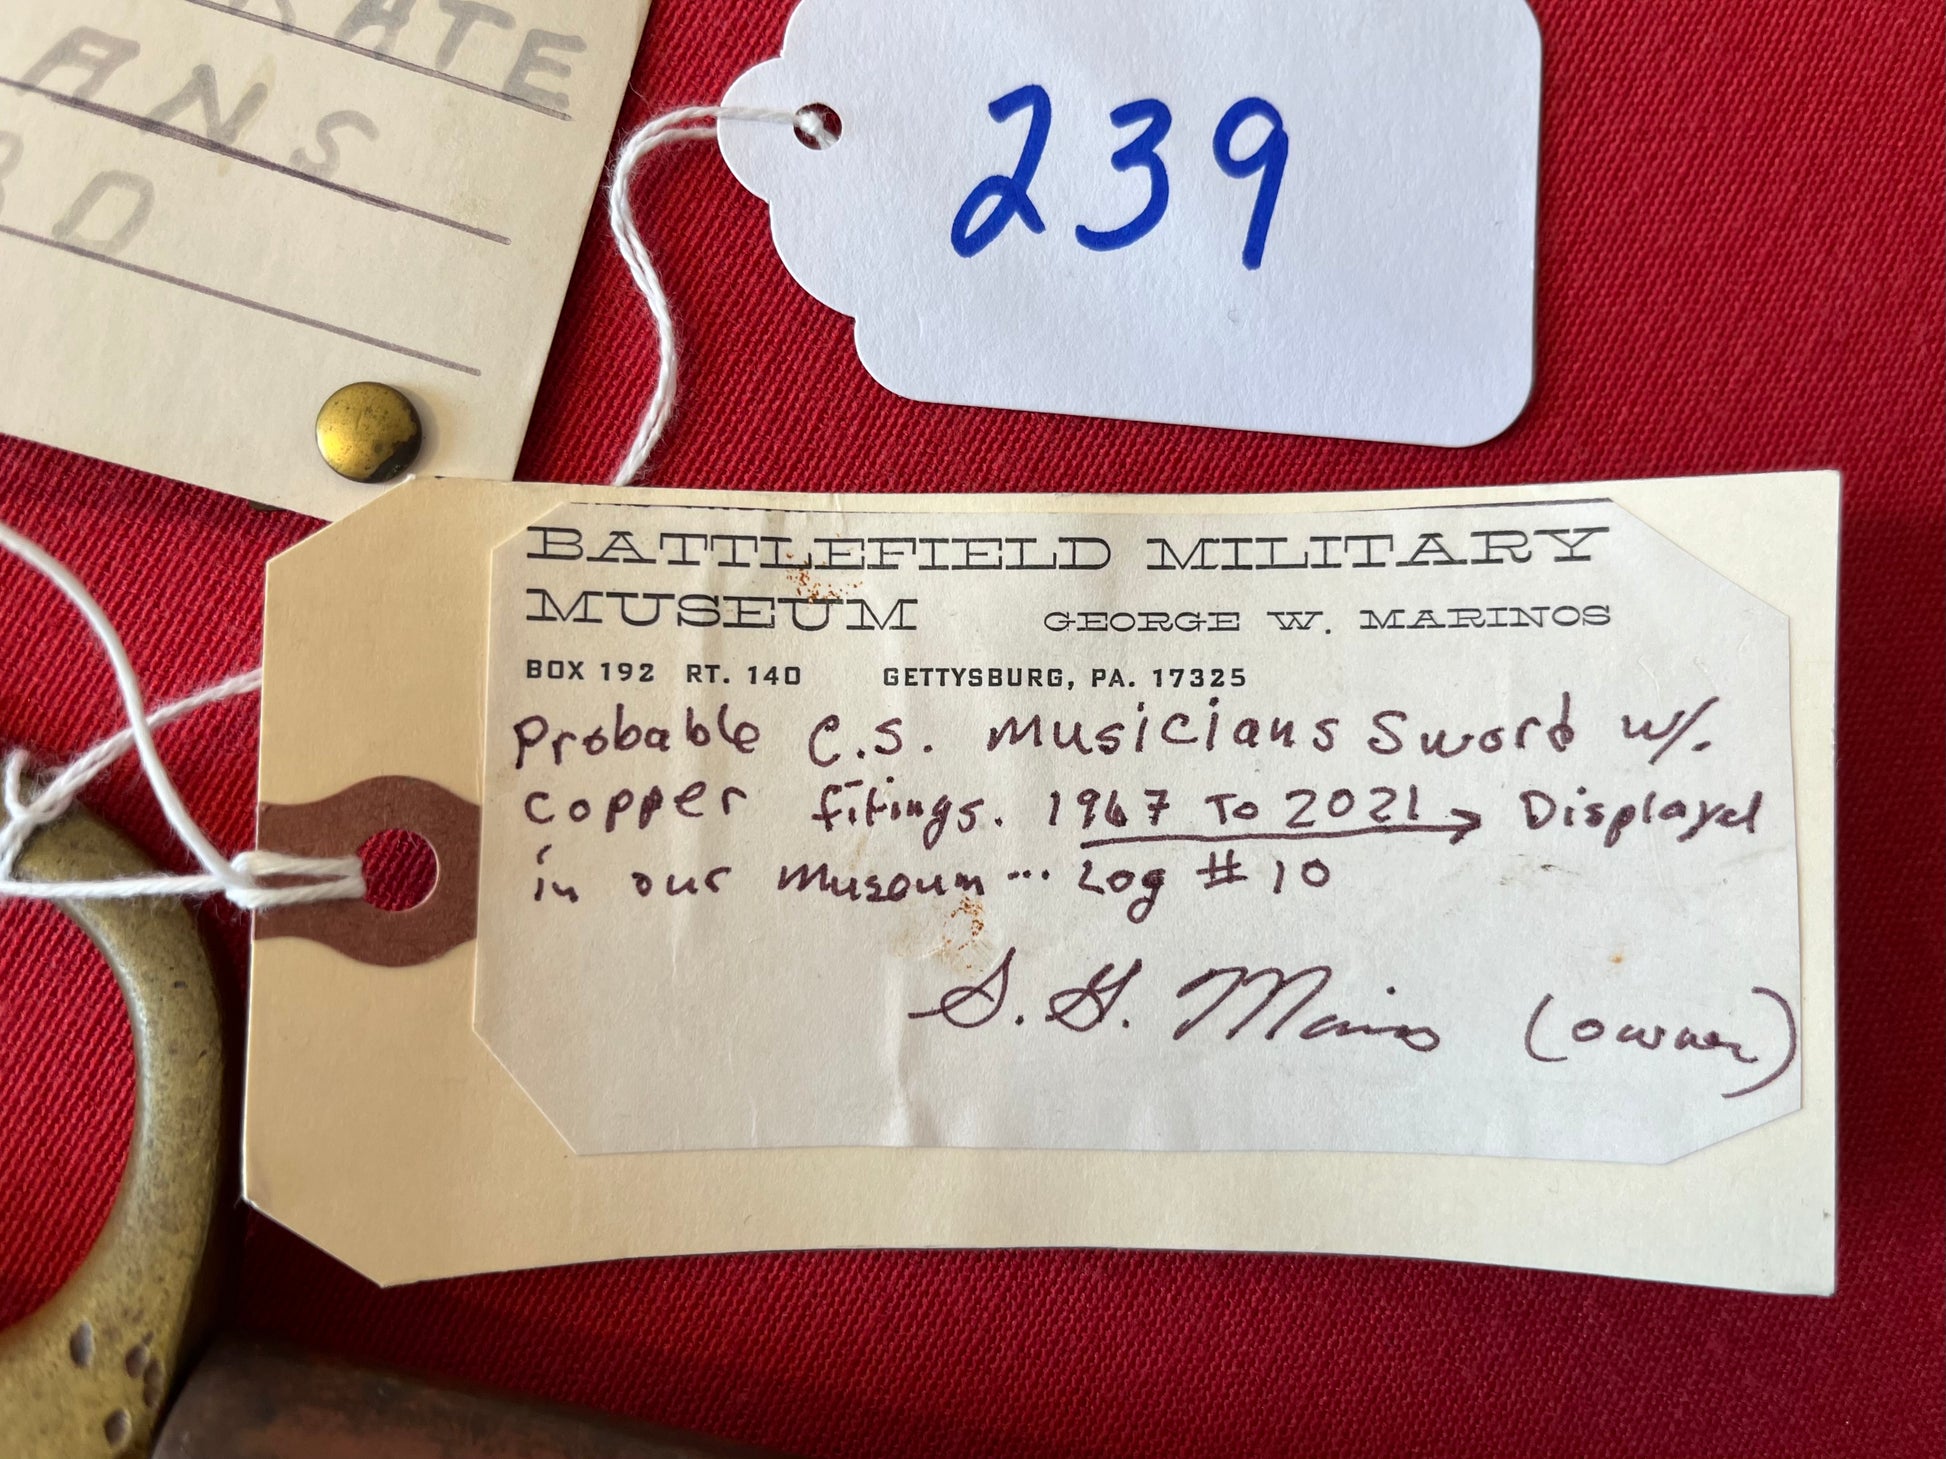 RATE
ANS
239
BATTLEFIELD MILITARY
MUSEUM GEORGE W. MARINOS
BOX 192 RT. 140 GETTYSBURG, PA. 17325
Probable C.S. Musicians Sword w/.
copper fitings. 1967 To 2021 → Displayed
in our museum... Log # 10
S. G. Marinos (owner)